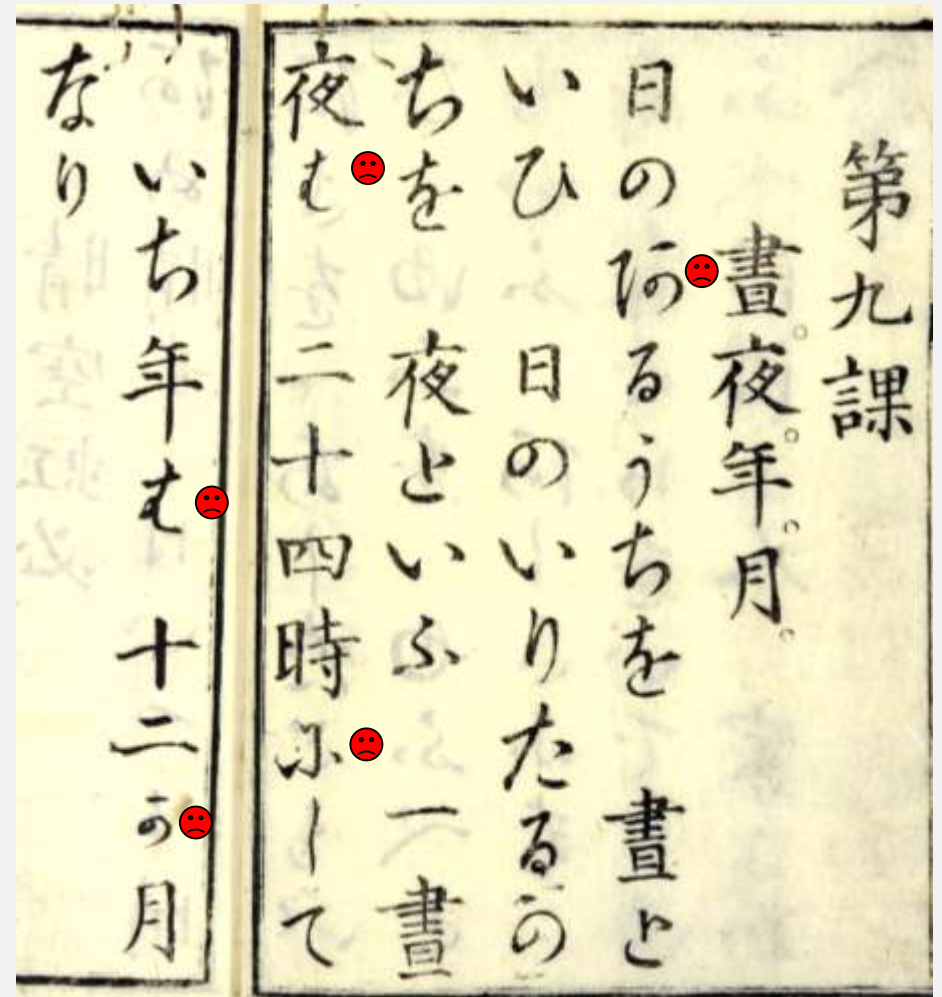 第九課
晝。夜。年。月。
日のあるうちを 晝と
いひ 日のいりたるの
ちを 夜といふ 一晝
夜は 二十四時にして
いち年は 十二か月
なり